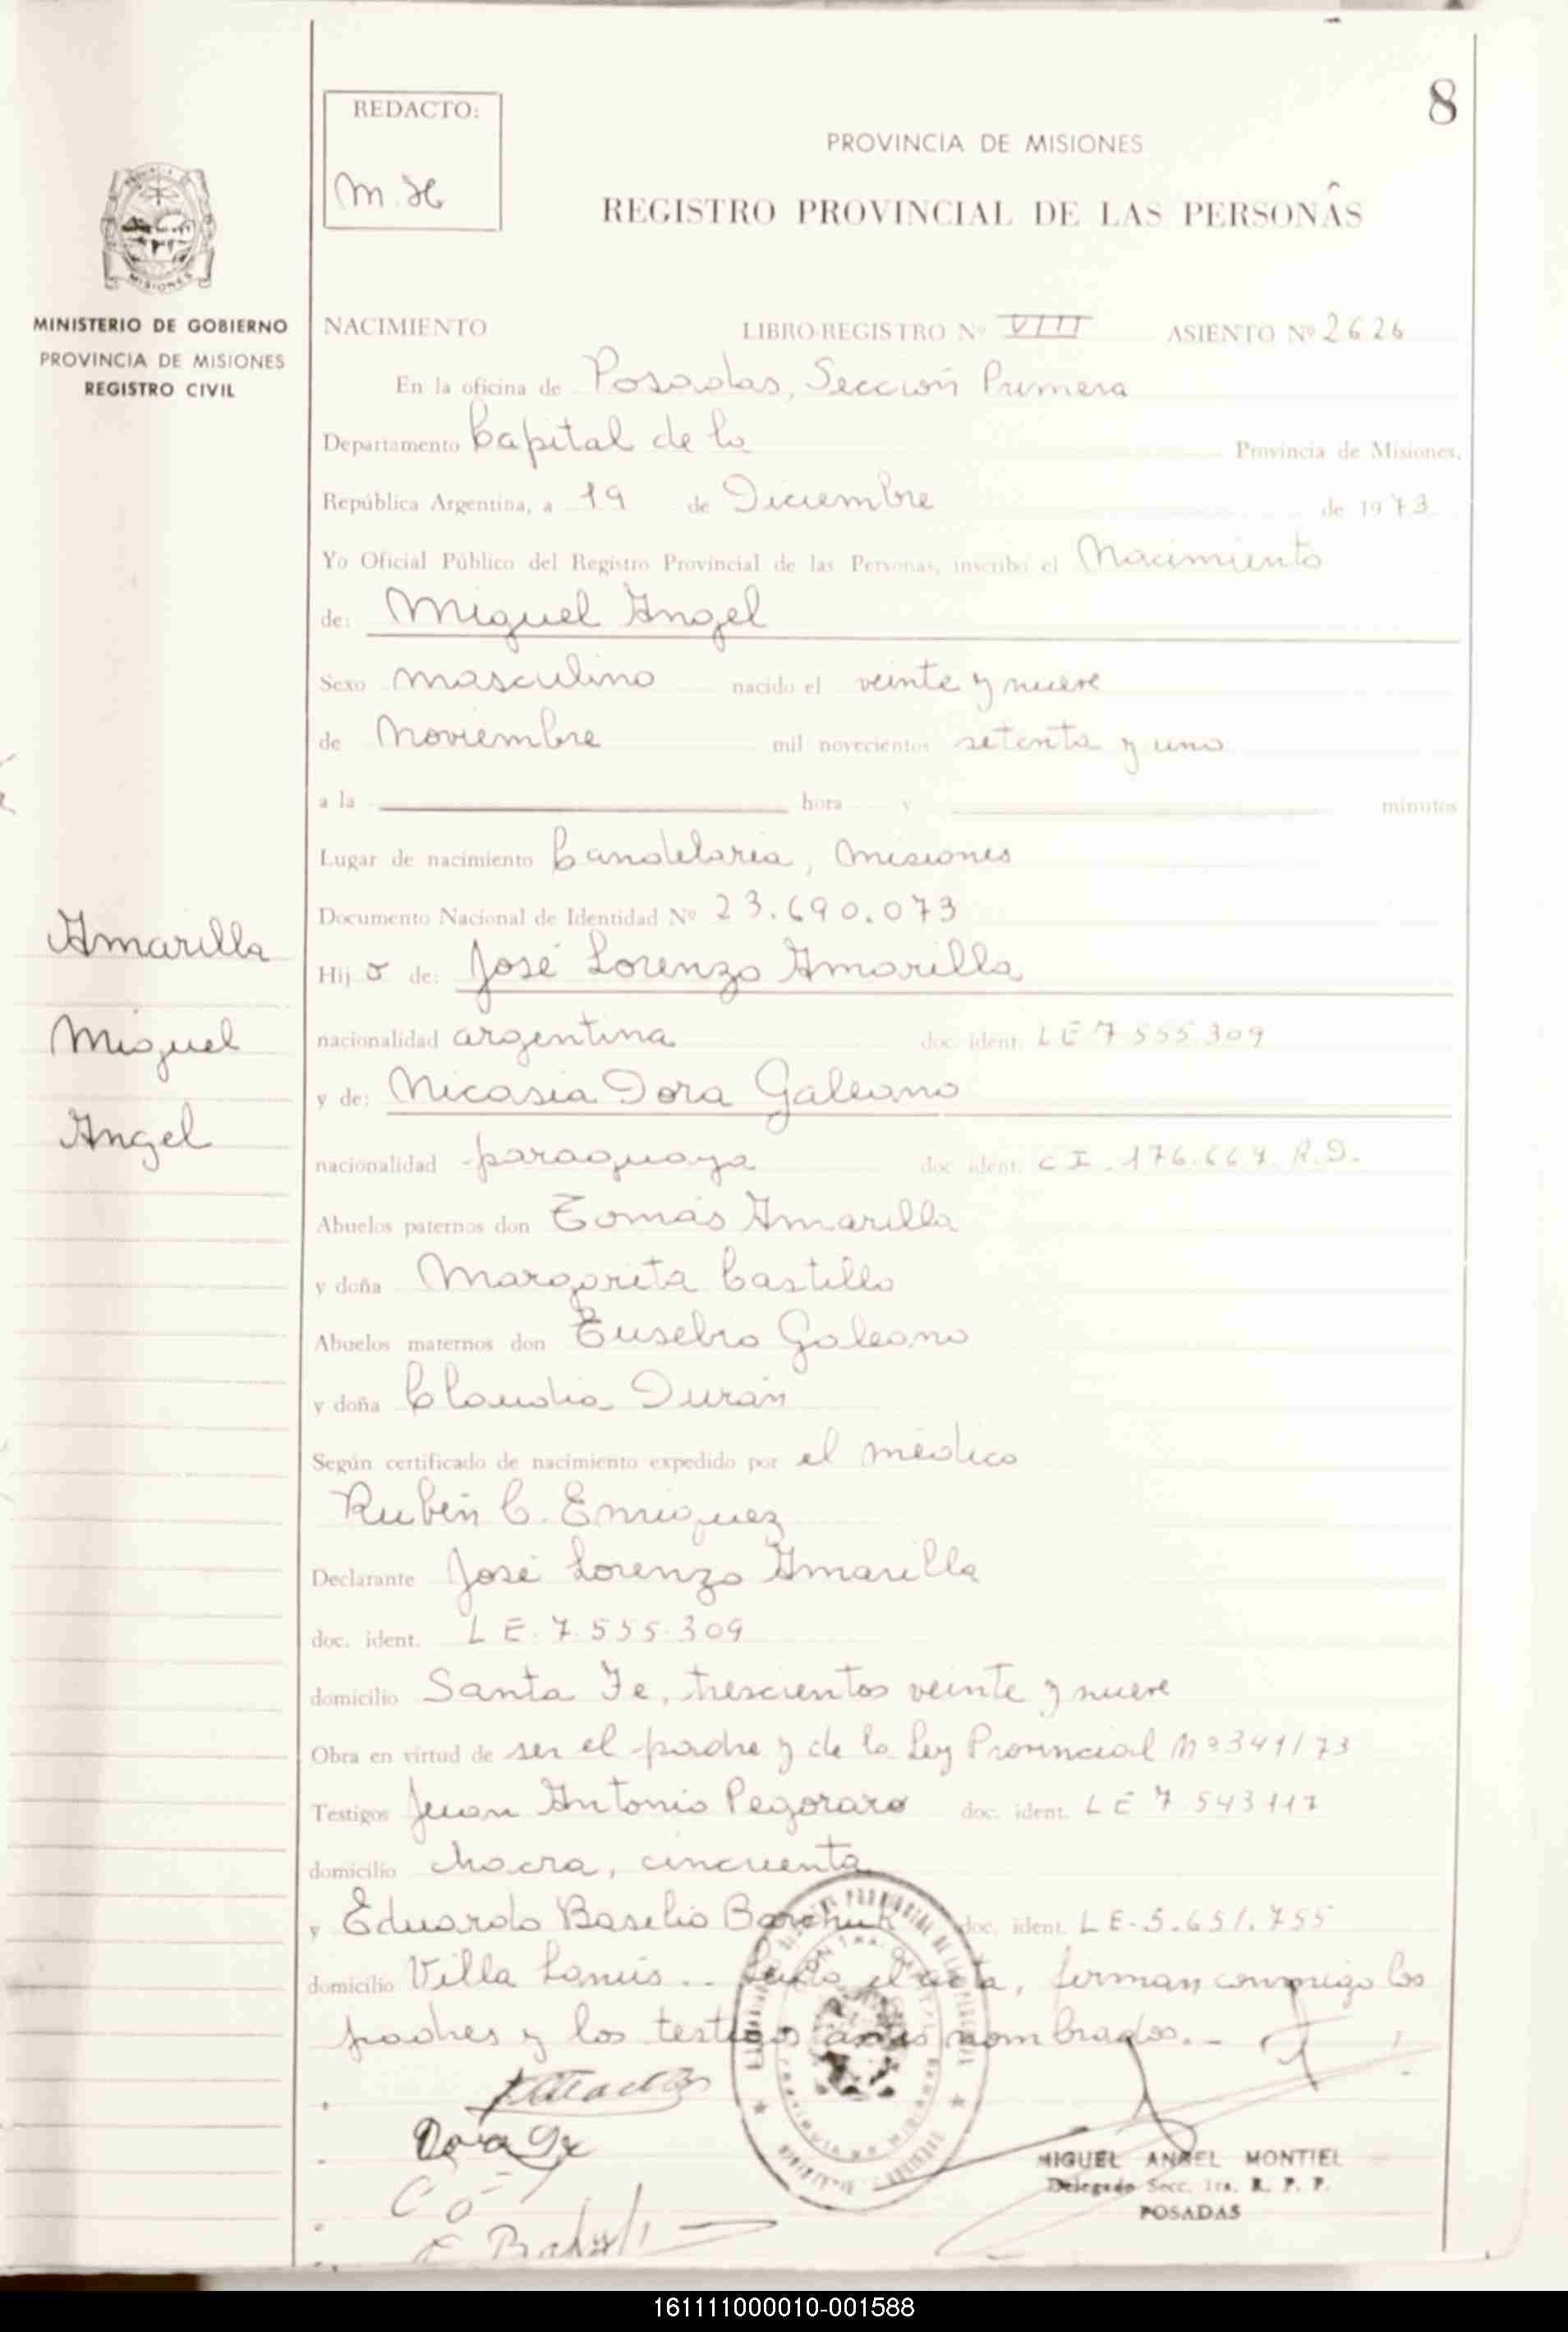 8
REDACTO:
PROVINCIA DE MISIONES
REGISTRO PROVINCIAL DE LAS PERSONAS
MISIONES
MINISTERIO DE GOBIERNO
PROVINCIA DE MISIONES
REGISTRO CIVIL
NACIMIENTO LIBRO-REGISTRO Nº VIII ASIENTO Nº 2626
En la oficina de Posadas, Sección Primera
Departamento Capital de la Provincia de Misiones,
República Argentina, a 19 de Diciembre de 1973
Yo Oficial Público del Registro Provincial de las Personas, inscribo el Nacimiento
de: Miguel Angel
Sexo masculino nacido el veinte y nueve
de Noviembre mil novecientos setenta y uno
a la hora y minutos
Lugar de nacimiento Candelaria, Misiones
Documento Nacional de Identidad Nº 23.690.073
Amarilla
Miguel
Angel
Hijo de: José Lorenzo Amarilla
nacionalidad argentina doc. ident. LE 7 555 309
y de: Nicasia Dora Galeano
nacionalidad paraguaya doc. ident. CI. 176.667. R.D.
Abuelos paternos don Tomás Amarilla
y doña Margarita Castillo
Abuelos maternos don Eusebio Galeano
y doña Claudia Durán
Según certificado de nacimiento expedido por el médico
Rubén C. Enriquez
Declarante José Lorenzo Amarilla
doc. ident. LE. 7.555.309
domicilio Santa Fe, trescientos veinte y nueve
Obra en virtud de ser el padre y de la Ley Provincial Nº 341/73
Testigos Juan Antonio Pegoraro doc. ident. LE 7 543 117
domicilio chacra, cincuenta
y Eduardo Basilio Barchuk doc. ident. LE-5.651.755
domicilio Villa Lanús.. Leída el acta, firman conmigo los
padres y los testigos antes nombrados.-
MIGUEL ANGEL MONTIEL
Delegado Secc. 1ra. R. P. P.
POSADAS
161111000010-001588